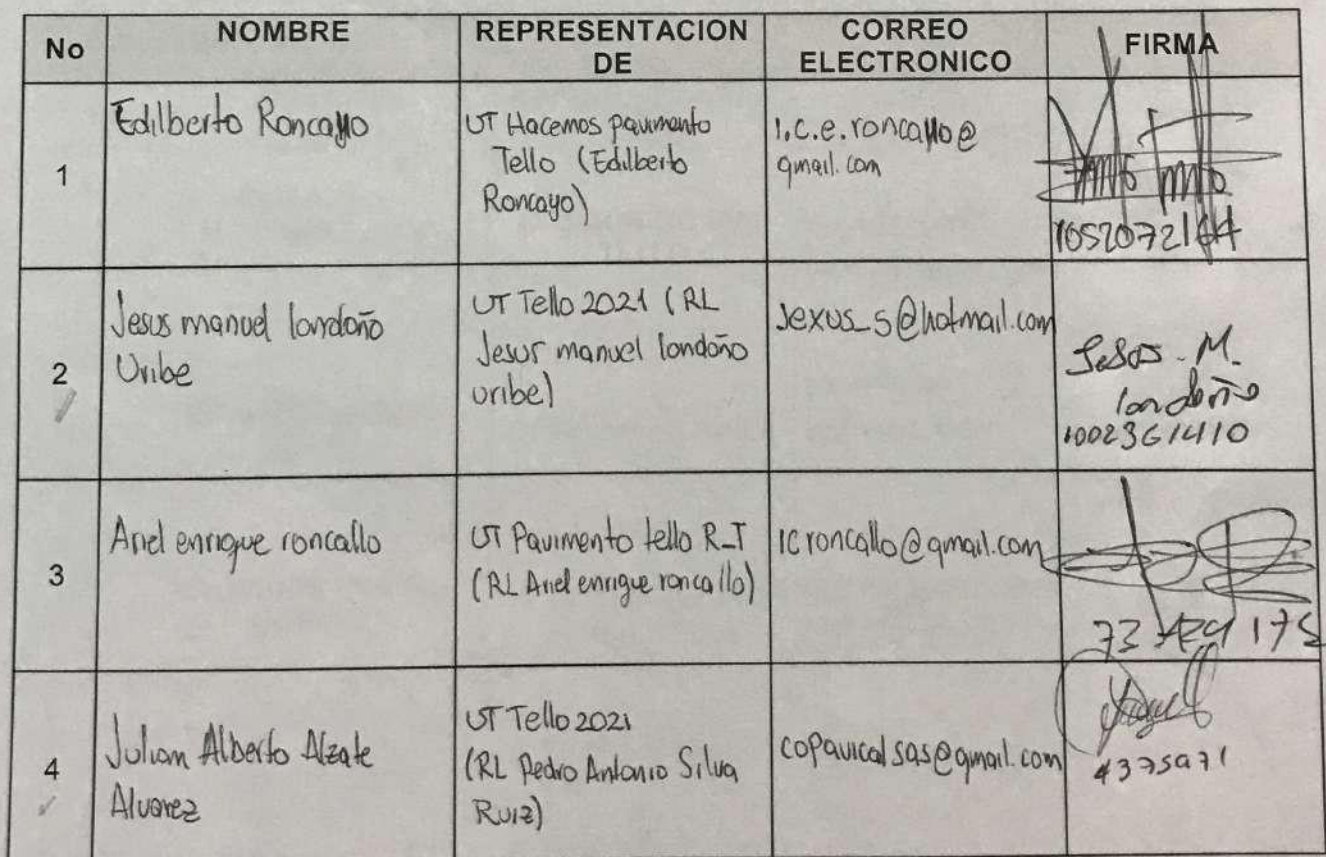 No
NOMBRE
REPRESENTACION
DE
CORREO
ELECTRONICO
FIRMA
1
Edilberto Roncayo
UT Hacemos pavimento
Tello (Edilberto
Roncayo)
i.c.e.roncayo@
gmail.com
1052072164
2
Jesus manuel londoño
Uribe
UT Tello 2021 (RL
Jesus manuel londoño
uribe)
Jexus_5@hotmail.com
Jesus M.
londoño
1002361410
3
Ariel enrique roncallo
UT Pavimento tello R_T
(RL Ariel enrique roncallo)
icroncallo@gmail.com
73
175
4
Julian Alberto Alzate
Alvarez
UT Tello 2021
(RL Pedro Antonio Silva
Ruiz)
copavicalsas@gmail.com
4375971